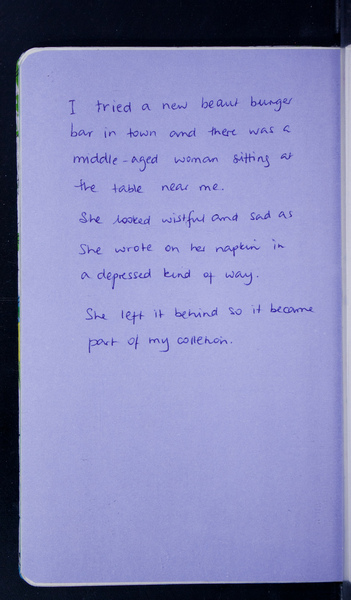 I tried a new beaut burger
bar in town and there was a
middle-aged woman sitting at
the table near me.
She looked wistful and sad as
She wrote on her napkin in
a depressed kind of way.
She left it behind so it became
part of my colletion.